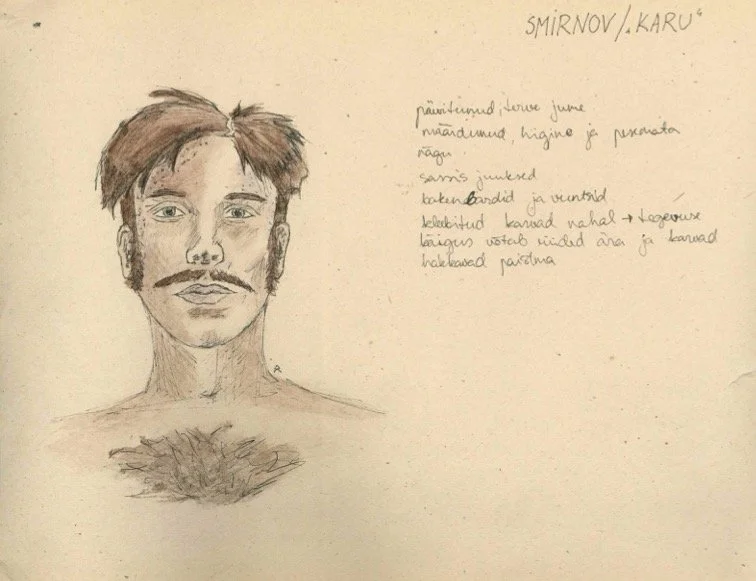 SMIRNOV / „KARU“
päevitunud, terve jume
määrdunud, higine ja pesemata
nägu
sassis juuksed
bakenbardid ja vuntsid
kleebitud karvad nahal → tegevuse
käigus võtab riided ära ja karvad
hakkavad paistma